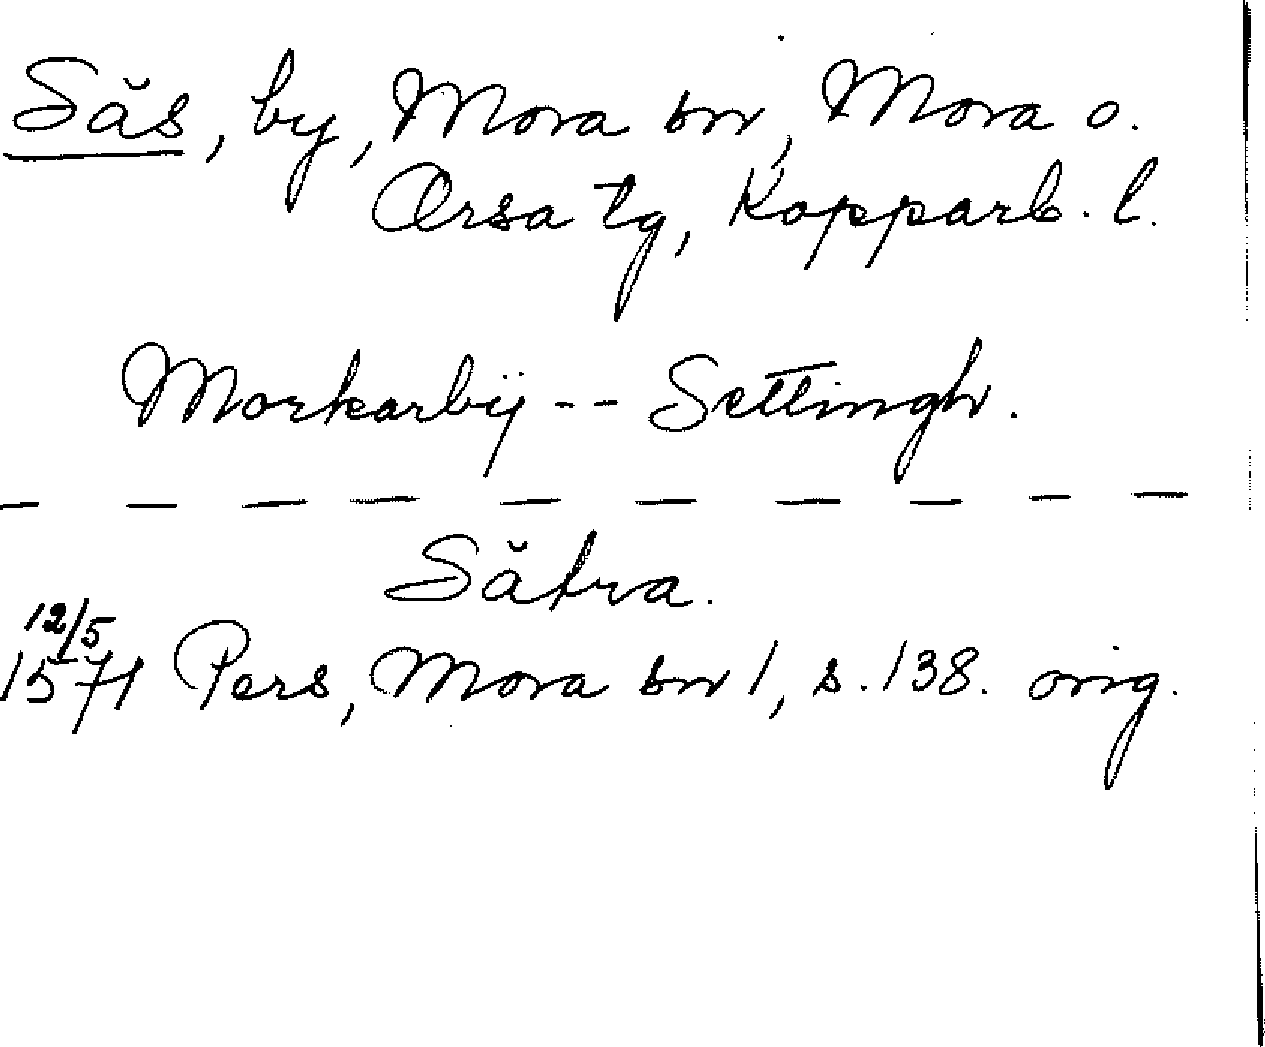 Säs, by, Mora sn, Mora o.
Orsa tg, Kopparb. l.
Morkarbÿ -- Settingh.
Sätra.
12/5
1571 Pers, Mora sn 1, s. 138. orig.